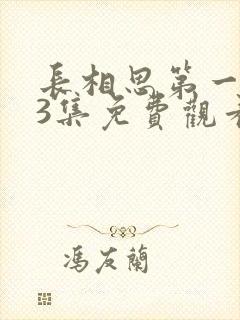 長相思第一
3集免費觀看
馮友蘭